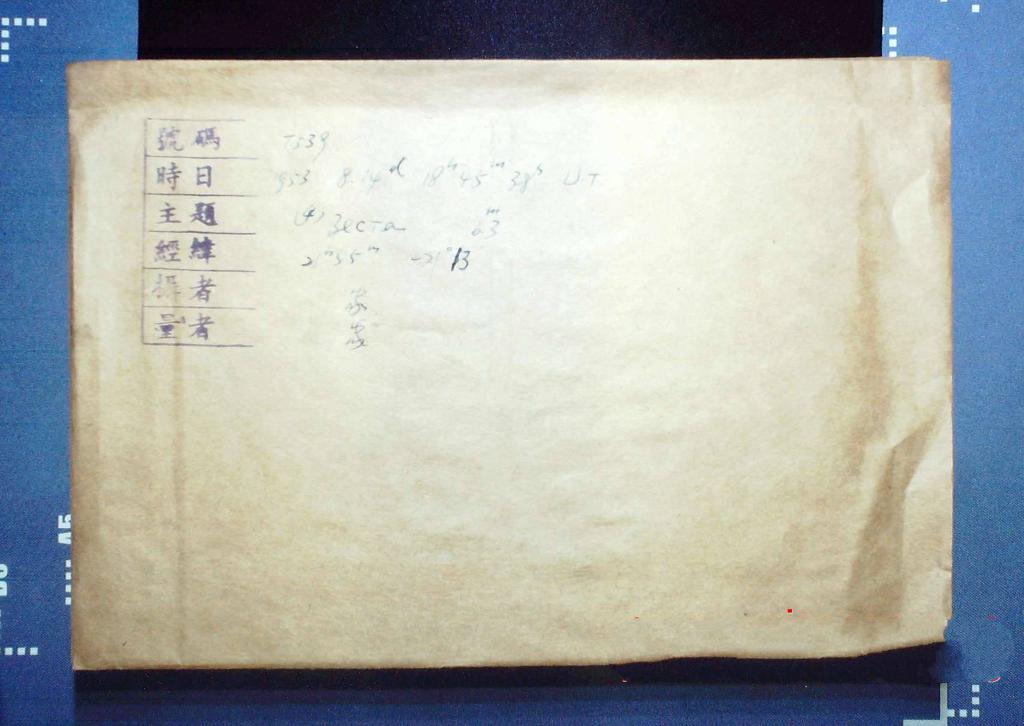 號碼 T539
時日 1953 8.14ᵈ 18ʰ45ᵐ38ˢ UT
主題 (4) Vesta 6ᵐ3
經緯 21ʰ35ᵐ -21°13
攝者
量者
A5